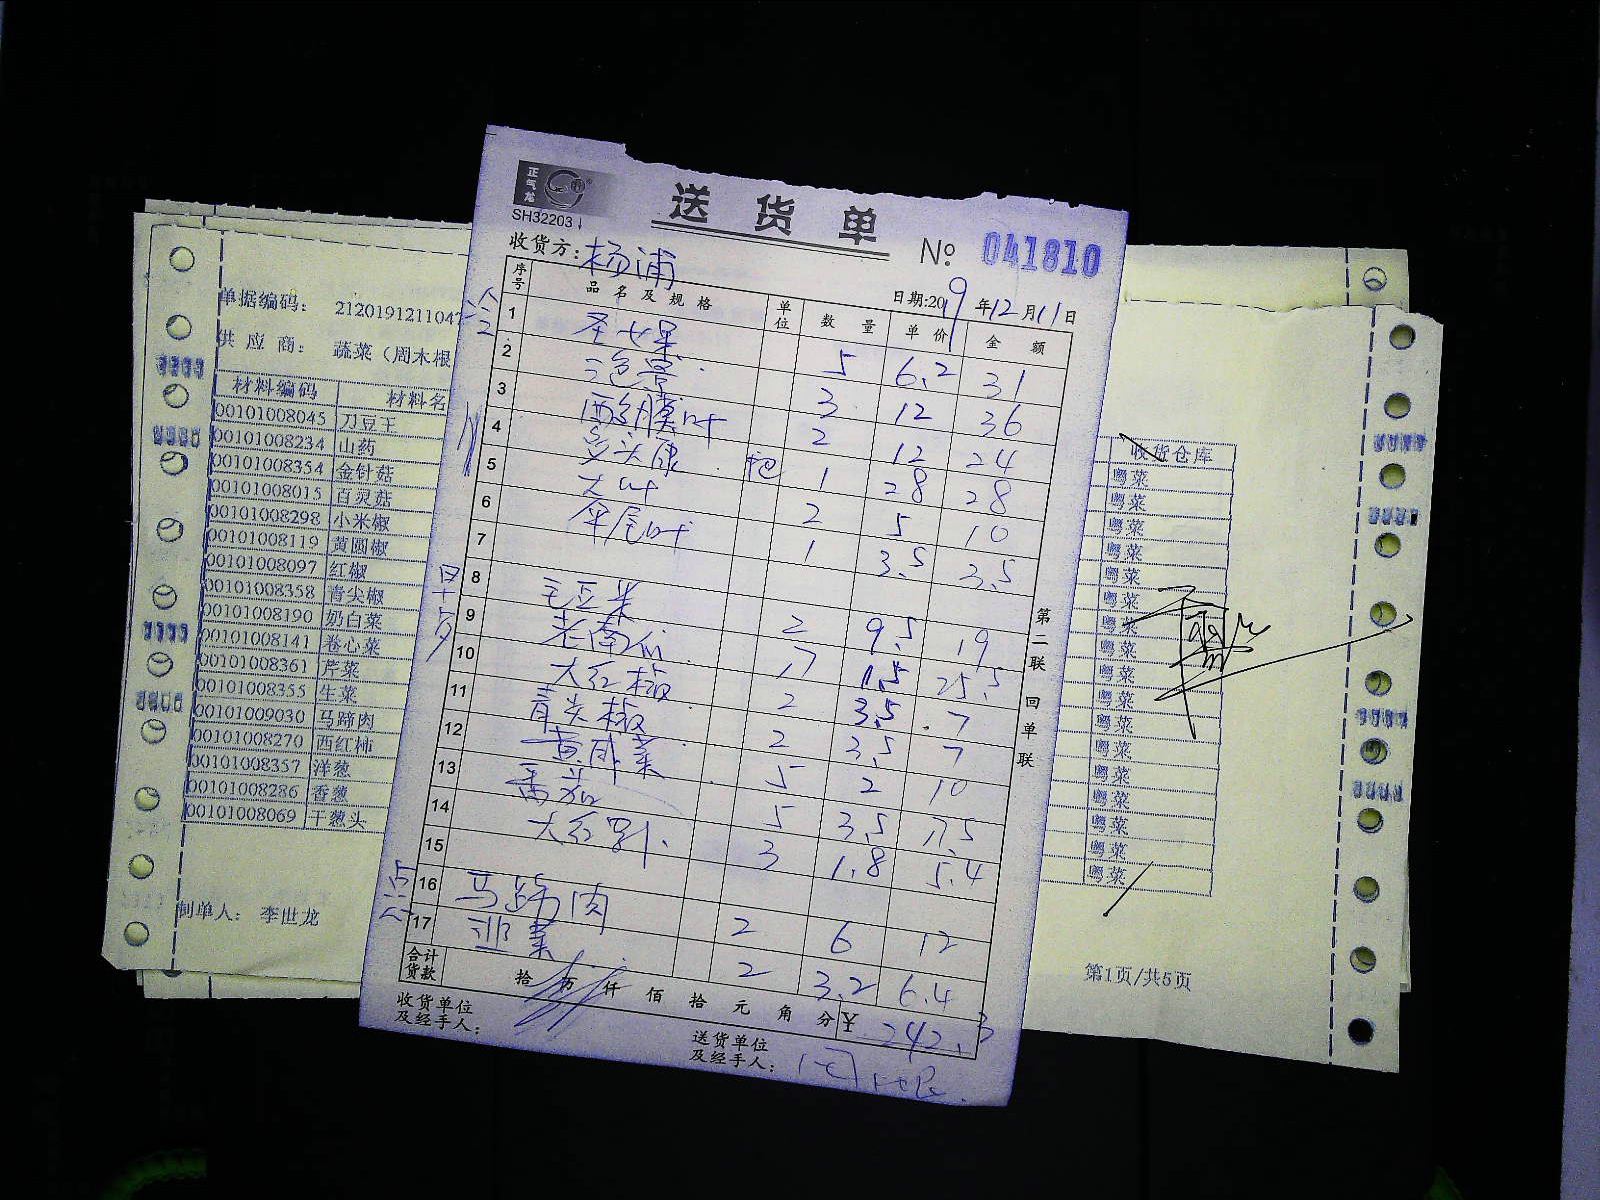 正气龙
SH32203
送货单
№ 041810
收货方: 杨浦
日期:2019年12月11日
序号 品名及规格 单位 数量 单价 金额
冷
1 圣女果 5 6.2 31
2 泡 3 12 36
3 2 12 24
4 把 1 28 28
5 大叶 2 5 10
6 1 3.5 3.5
7
8 毛豆米 2 9.5 19
9 老南瓜 17 1.5 25.5
10 大红椒 2 3.5 7
11 青尖椒 2 3.5 7
12 5 2 10
13 番茄 5 3.5 17.5
14 大红 3 1.8 5.4
15
点心
16 马蹄肉 2 6 12
17 2 3.2 6.4
合计货款 拾 万 仟 佰 拾 元 角 分 ¥ 242.3
收货单位及经手人:
送货单位及经手人: 周木根
第二联 回单联
单据编码: 2120191211047
供应商: 蔬菜(周木根
材料编码 材料名
00101008045 刀豆王
00101008234 山药
00101008354 金针菇
00101008015 百灵菇
00101008298 小米椒
00101008119 黄圆椒
00101008097 红椒
00101008358 青尖椒
00101008190 奶白菜
00101008141 卷心菜
00101008361 芹菜
00101008355 生菜
00101009030 马蹄肉
00101008270 西红柿
00101008357 洋葱
00101008286 香葱
00101008069 干葱头
制单人: 李世龙
收货仓库
粤菜
粤菜
粤菜
粤菜
粤菜
粤菜
粤菜
粤菜
粤菜
粤菜
粤菜
粤菜
粤菜
粤菜
粤菜
粤菜
粤菜
第1页/共5页